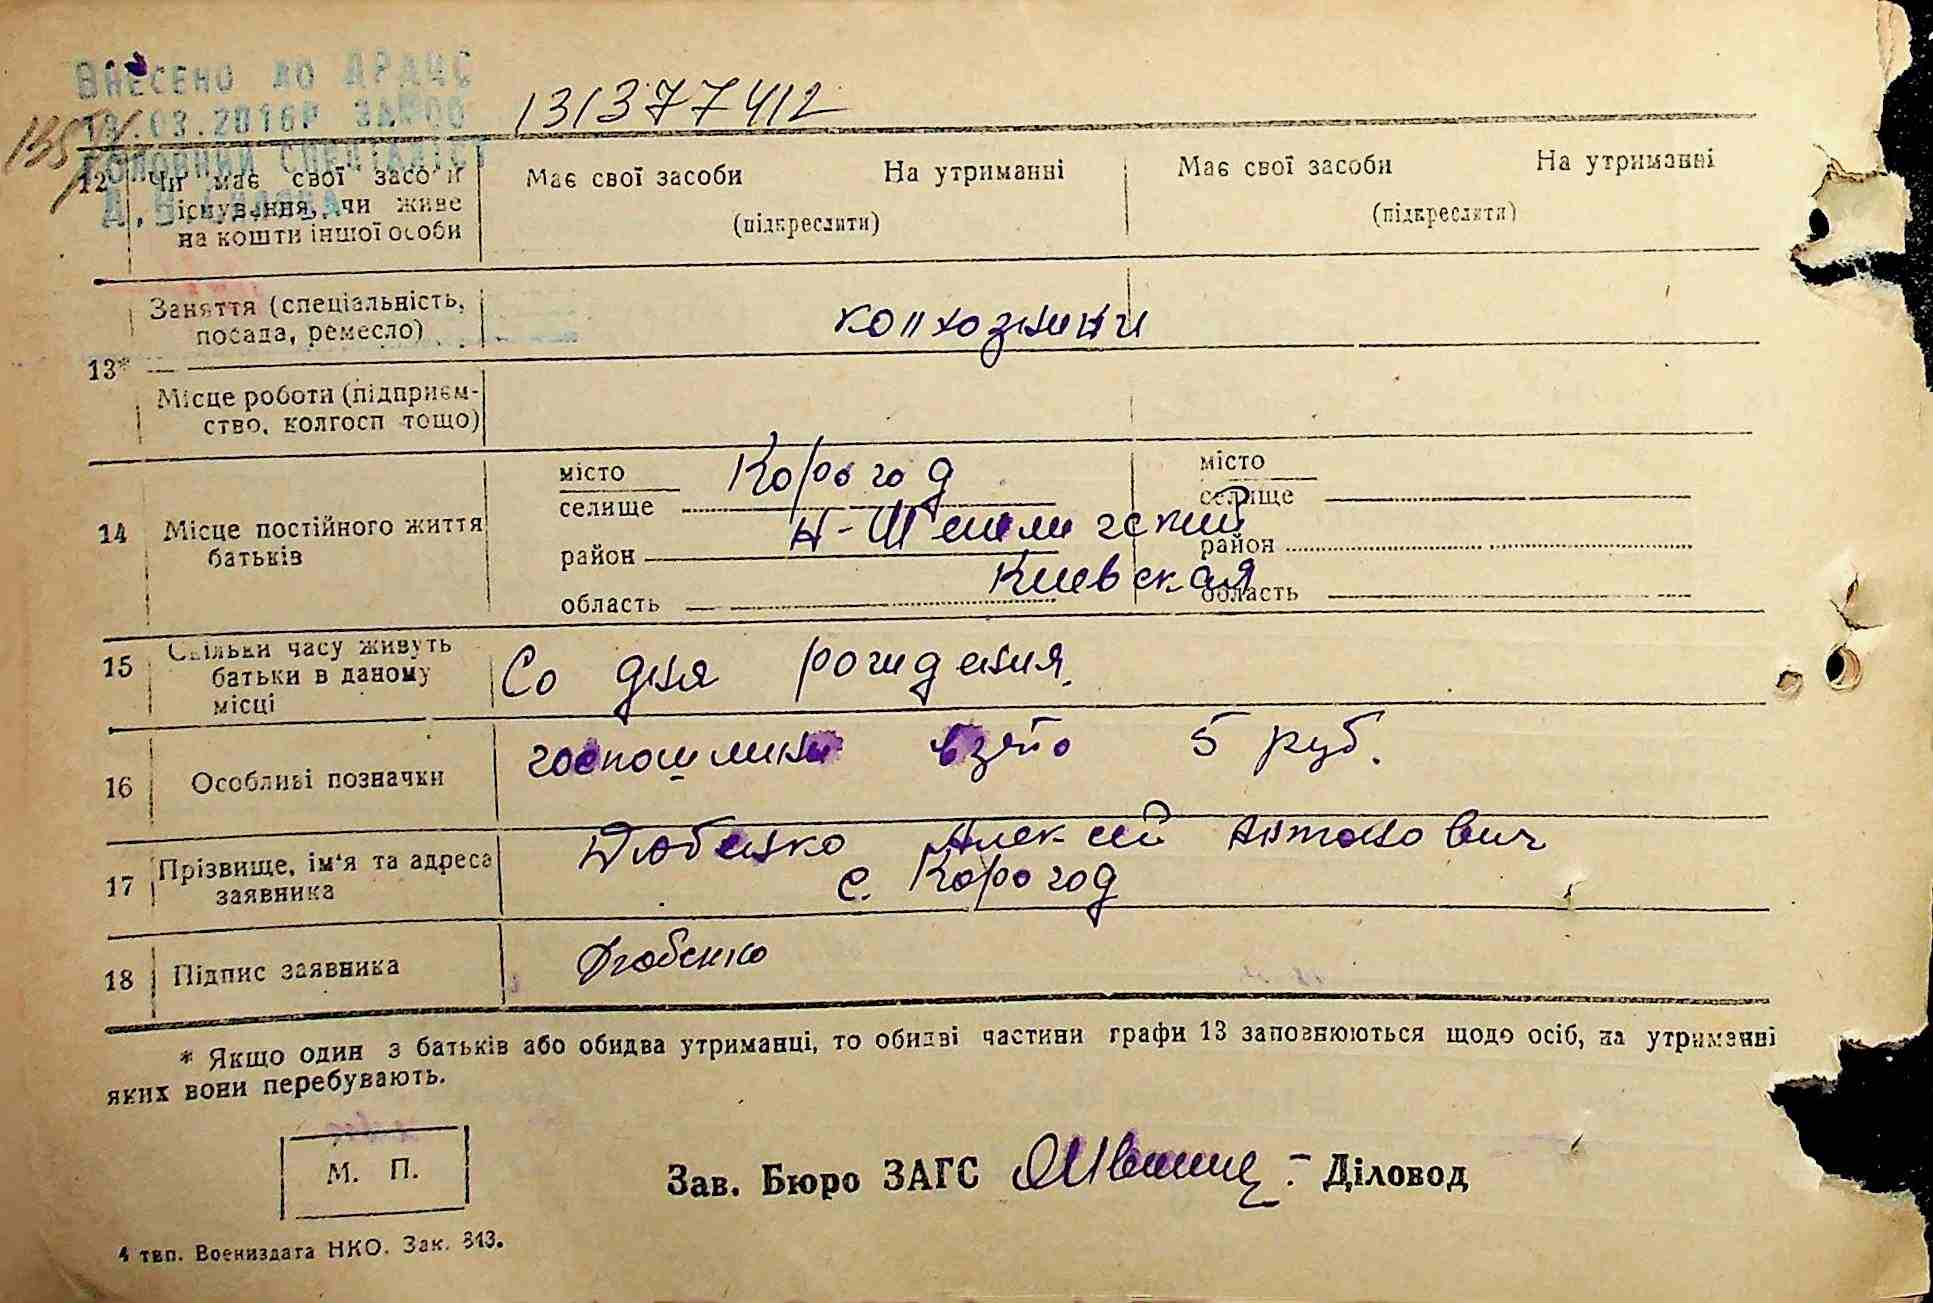 ВНЕСЕНО ДО ДРАЦС
.03.2016Р
ГОЛОВНИЙ СПЕЦІАЛІСТ
131377412
12 Чи має свої засоби існування, чи живе на кошти іншої особи
Має свої засоби На утриманні
(підкреслити)
Має свої засоби На утриманні
(підкреслити)
13* Заняття (спеціальність, посада, ремесло)
колхозники
Місце роботи (підприєм-
ство, колгосп тощо)
14 Місце постійного життя батьків
місто
селище Корогод
район Н-Шепеличский
область Киевская
місто
селище
район
область
15 Скільки часу живуть батьки в даному місці
Со дня рождения.
16 Особливі позначки
госпошлины взято 5 руб.
17 Прізвище, ім'я та адреса заявника
Дюбенко Алексей Антонович
с. Корогод
18 Підпис заявника
Дюбенко
* Якщо один з батьків або обидва утриманці, то обидві частини графи 13 заповнюються щодо осіб, на утриманні
яких вони перебувають.
М. П.
Зав. Бюро ЗАГС Діловод
4 тип. Воениздата НКО. Зак. 813.